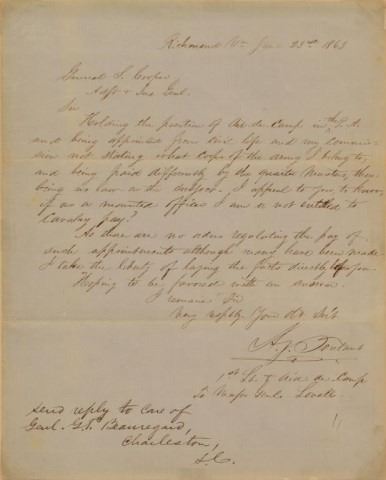 Richmond Va Jan 23rd 1863
General S. Cooper
Adjt & Ins Genl.
Sir
Holding the position of Aid-de-Camp in the C.A.
and being appointed from civil life and my commis-
sion not stating what Corps of the army I belong to,
and being paid differently by the quarter Masters, there
being no law on the subject. I appeal to you to know
if as a mounted officer I am or not entitled to
Cavalry pay?
As there are no orders regulating the pay of
such appointments although many have been made
I take the liberty of laying the facts directly before you.
Hoping to be favored with an answer.
I remain Sir
Very respty Your Obt Svt
1st Lt & Aid de Camp
To Major Genl. Lovell
send reply to care of
Genl. G.T. Beauregard,
Charleston,
S.C.